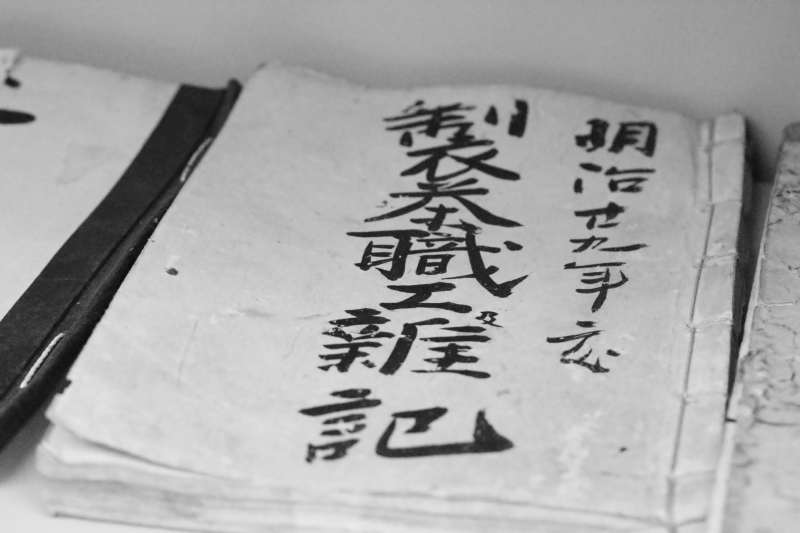 明治廿九年
製茶職工及雜記